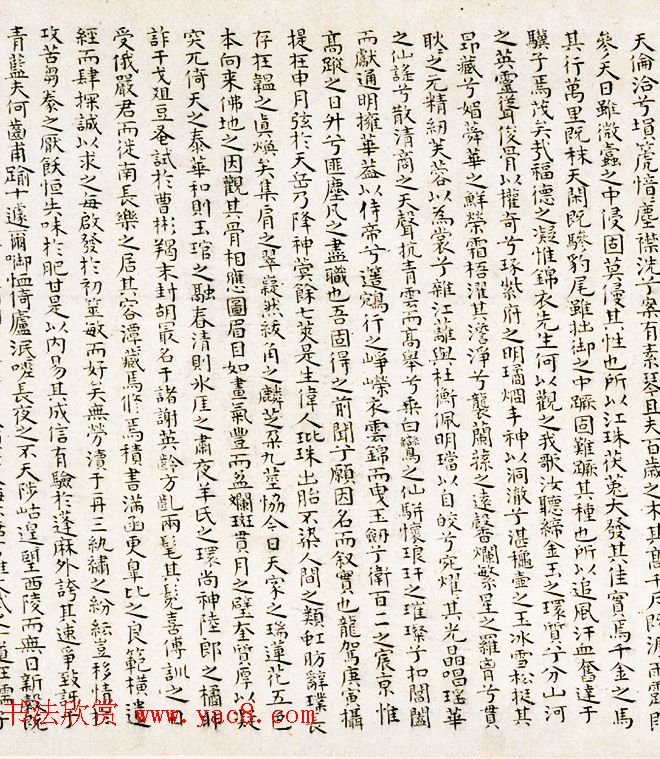 天倫洽兮塤篪愔塵襟洗兮案有素琴且夫百歲之木其高千尺陟渡雨露即
參天日雖微蠹之中侵固莫侵其性也所以江珠茯菟大發其佳實焉千金之馬
其行萬里既秣天閑既驂豹尾雖拙御之中蹶固難蹶其種也所以追風汗血奮達于
驥子焉茂矣哉福德之凝惟錦衣先生何以觀之我歌汝聽締金玉之環質兮分山河
之英靈聳俊骨以權奇兮琢紫府之明璚烱丰神以洞澈兮湛櫑壺之玉冰雪松挺其
昂藏兮媚蕣華之鮮榮霜梧濯其澹淨兮襲蘭蓀之遠馨爛繁星之羅胷兮貫
耿之元精紉芙蓉以為裳兮雜江蘺與杜衡佩明璫以自皎兮宛燿其光晶唱瑤華
之仙謠兮散清商之天聲抗青雲而高舉兮乘白鸞之仙駢懷琅玕之璀璨兮扣閶闔
而獻通明擁華葢以侍帝兮邅鵷行之崢嶸衣雲錦而曳玉劒兮衛百二之宸京惟
高蹤之日升兮匪塵凡之盡職也吾固得之前聞兮願因名而叙實也龍駕庚寅攝
提在申月弦於天岳乃降神蓂餘七莢是生偉人玭珠出胎不染人間之類虹肪辭璞長
存在韞之真煥矣集肩之翠凝然紱角之麟芝朵九莖協今日天家之瑞蓮花五色
本向來佛地之因觀其骨相應圖眉目如畫氣豐而盆斕斑貫月之璧奎質厚以疑
突兀倚天之泰華和則玉琯之融春清則氷厓之肅夜羊氏之環尚神陸郎之橘耶
詐干戈俎豆蚤試於曹彬羯末封胡最名于諸謝英齡方齓兩髦其鬓喜傅訓之
受俄嚴君而徙南長樂之居其容潭藏焉修焉積書滿函更臯比之良範橫遺
經而肆探誠以求之每啟發於初筮敏而好矣無勞瀆于再三紈繡之紛紜豈移情於
攻苦芻豢之厭飫恒失味於肥甘是以内易其成信有驗於蓬麻外誇其速爭致訝
青藍夫何齒甫踰十遽爾啣恤倚廬泯嗟長夜之不天陟岵遑望西陵而無日新
书法欣赏 www.yac8.com